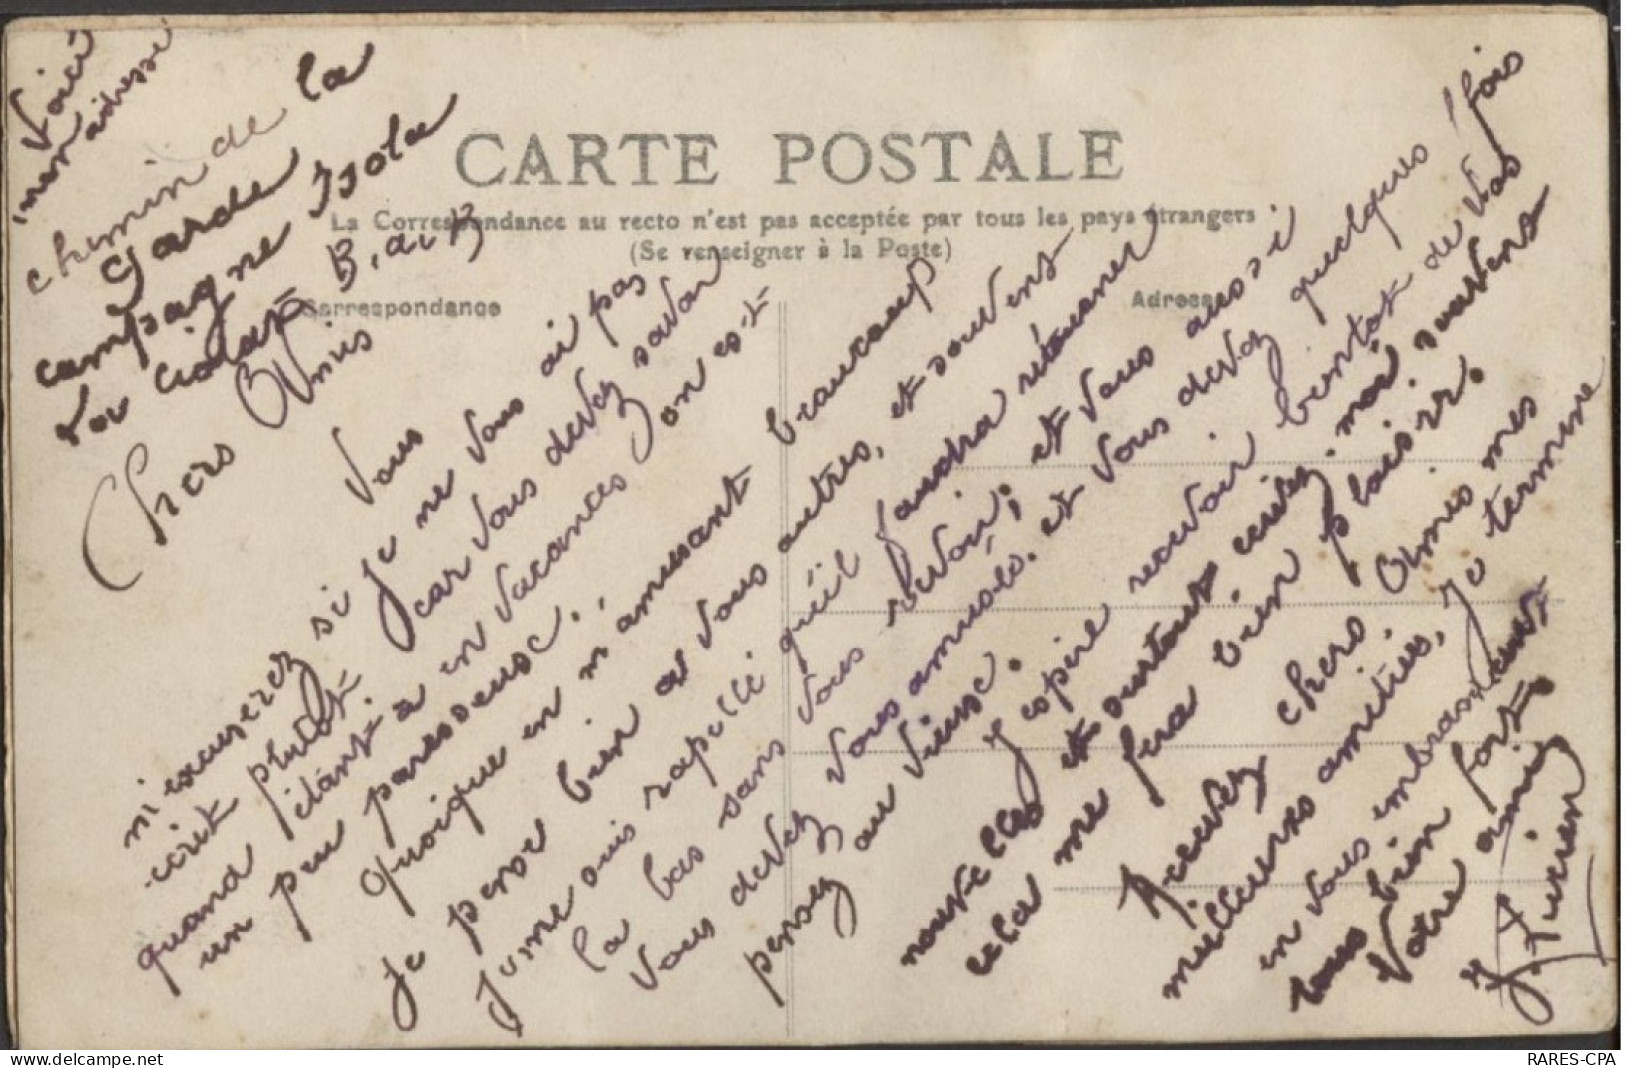 Voici
mon adresse
chemin de la
Garde
campagne Isola
La Ciotat B. du R
CARTE POSTALE
La Correspondance au recto n'est pas acceptée par tous les pays étrangers
(Se renseigner à la Poste)
Correspondance
Adresse
Chers Amis
Vous
m'excuserez si je ne vous ai pas
écrit plutôt car vous devez savoir
quand étant en vacances on est
un peu paresseuse.
Quoique en m'amusant beaucoup
je pense bien a vous autres, et souvent
je me suis rapellé qu'il faudra retourner
la bas sans vous revoir, et vous aussi
vous devez vous amuser. et vous devez quelques fois
pensez au
J'espère recevoir bientot de vos
nouvelles et surtout écrivez moi souvent
cela me fera bien plaisir.
Recevez chers Amis mes
meilleures amitiés, je termine
en vous embrassant
tous bien fort.
Votre amie
Lucien
delcampe.net
RARES-CPA